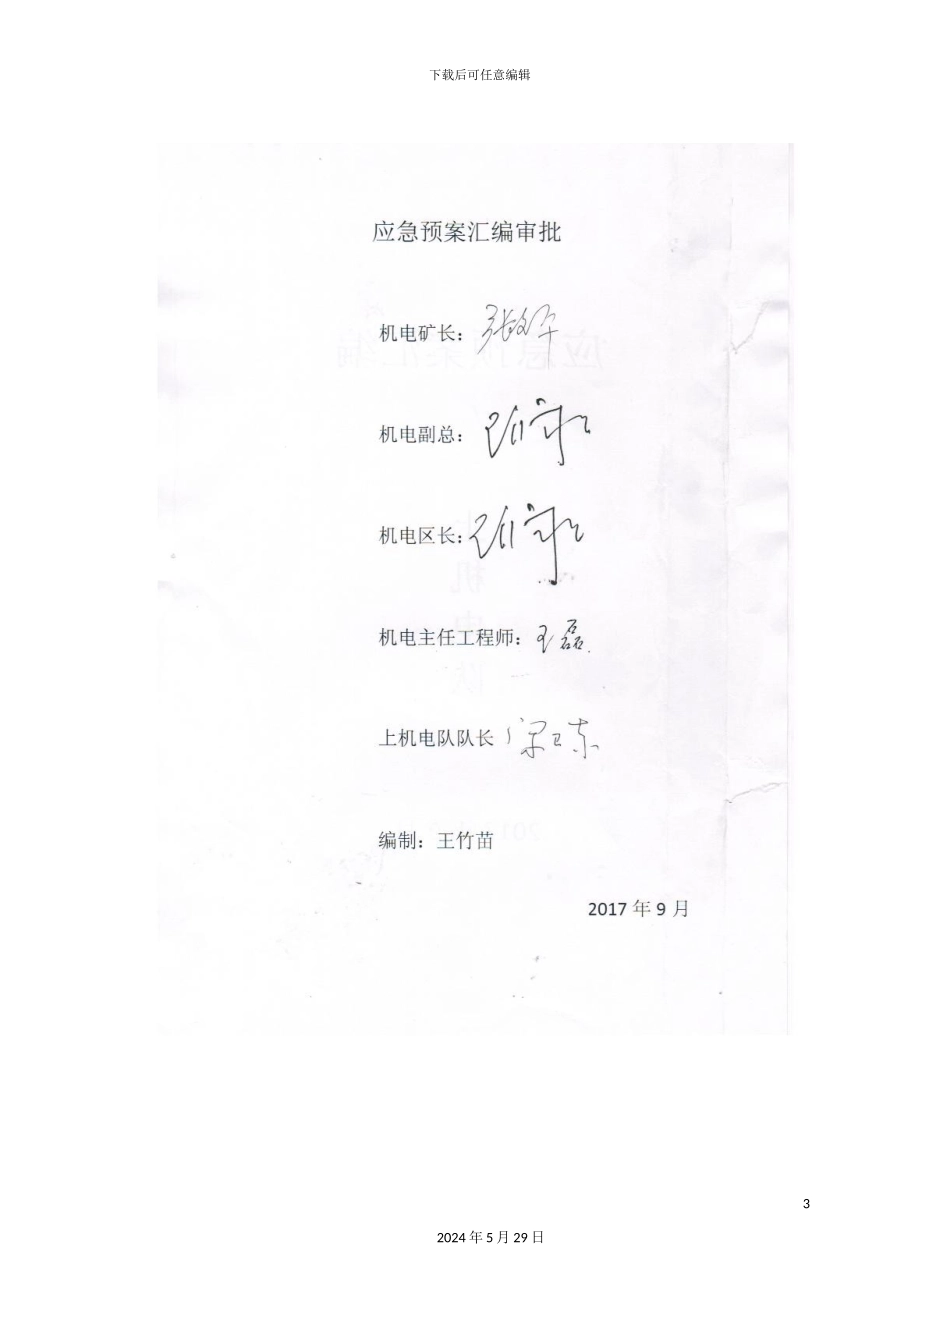 下载后可任意编辑
应急预案汇编审批
机电矿长：
机电副总：
机电区长：
机电主任工程师：王磊
上机电队队长
编制：王竹苗
2017 年 9 月
3
2024 年 5 月 29 日